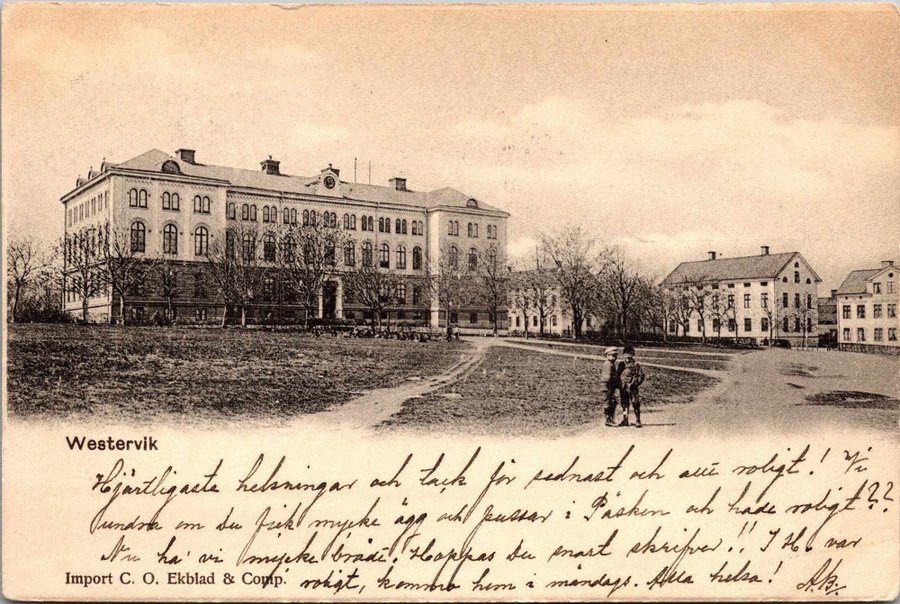 Westervik
Hjärtligaste helsningar och tack för sednast och allt roligt! Vi
undra om Du fick mycke ägg och pussar i Påsken och hade roligt??
Nu ha' vi mycke brådt! Hoppas Du snart skrifver!! I H. var
Import C. O. Ekblad & Comp.
roligt, kommo hem i måndags. Alla helsa! AB.